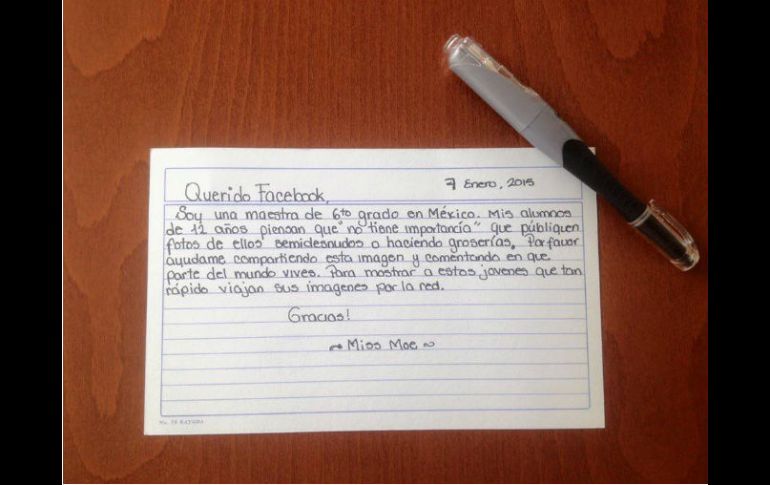 7 Enero, 2015
Querido Facebook,
Soy una maestra de 6to grado en México. Mis alumnos
de 12 años piensan que "no tiene importancia" que públiquen
fotos de ellos semidesnudos o haciendo groserías. Por favor
ayudame compartiendo esta imagen y comentando en que
parte del mundo vives. Para mostrar a estos jovenes que tan
rápido viajan sus imagenes por la red.
Gracias!
~ Miss Moe ~